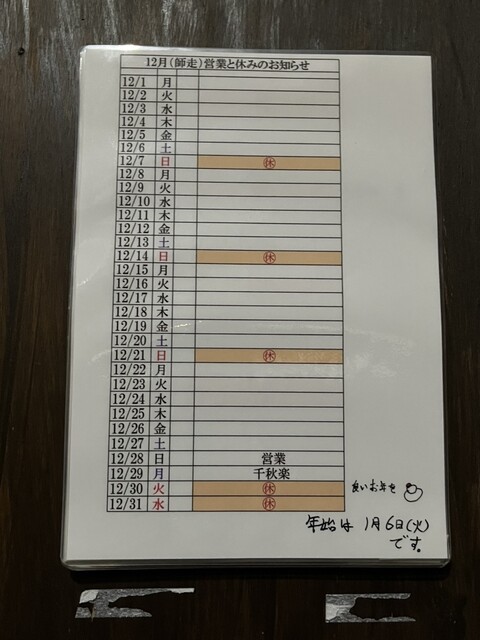 12月(師走)営業と休みのお知らせ
12/1 月
12/2 火
12/3 水
12/4 木
12/5 金
12/6 土
12/7 日 ㊡
12/8 月
12/9 火
12/10 水
12/11 木
12/12 金
12/13 土
12/14 日 ㊡
12/15 月
12/16 火
12/17 水
12/18 木
12/19 金
12/20 土
12/21 日 ㊡
12/22 月
12/23 火
12/24 水
12/25 木
12/26 金
12/27 土
12/28 日 営業
12/29 月 千秋楽
12/30 火 ㊡
12/31 水 ㊡
良いお年を
年始は 1月6日(火)
です。